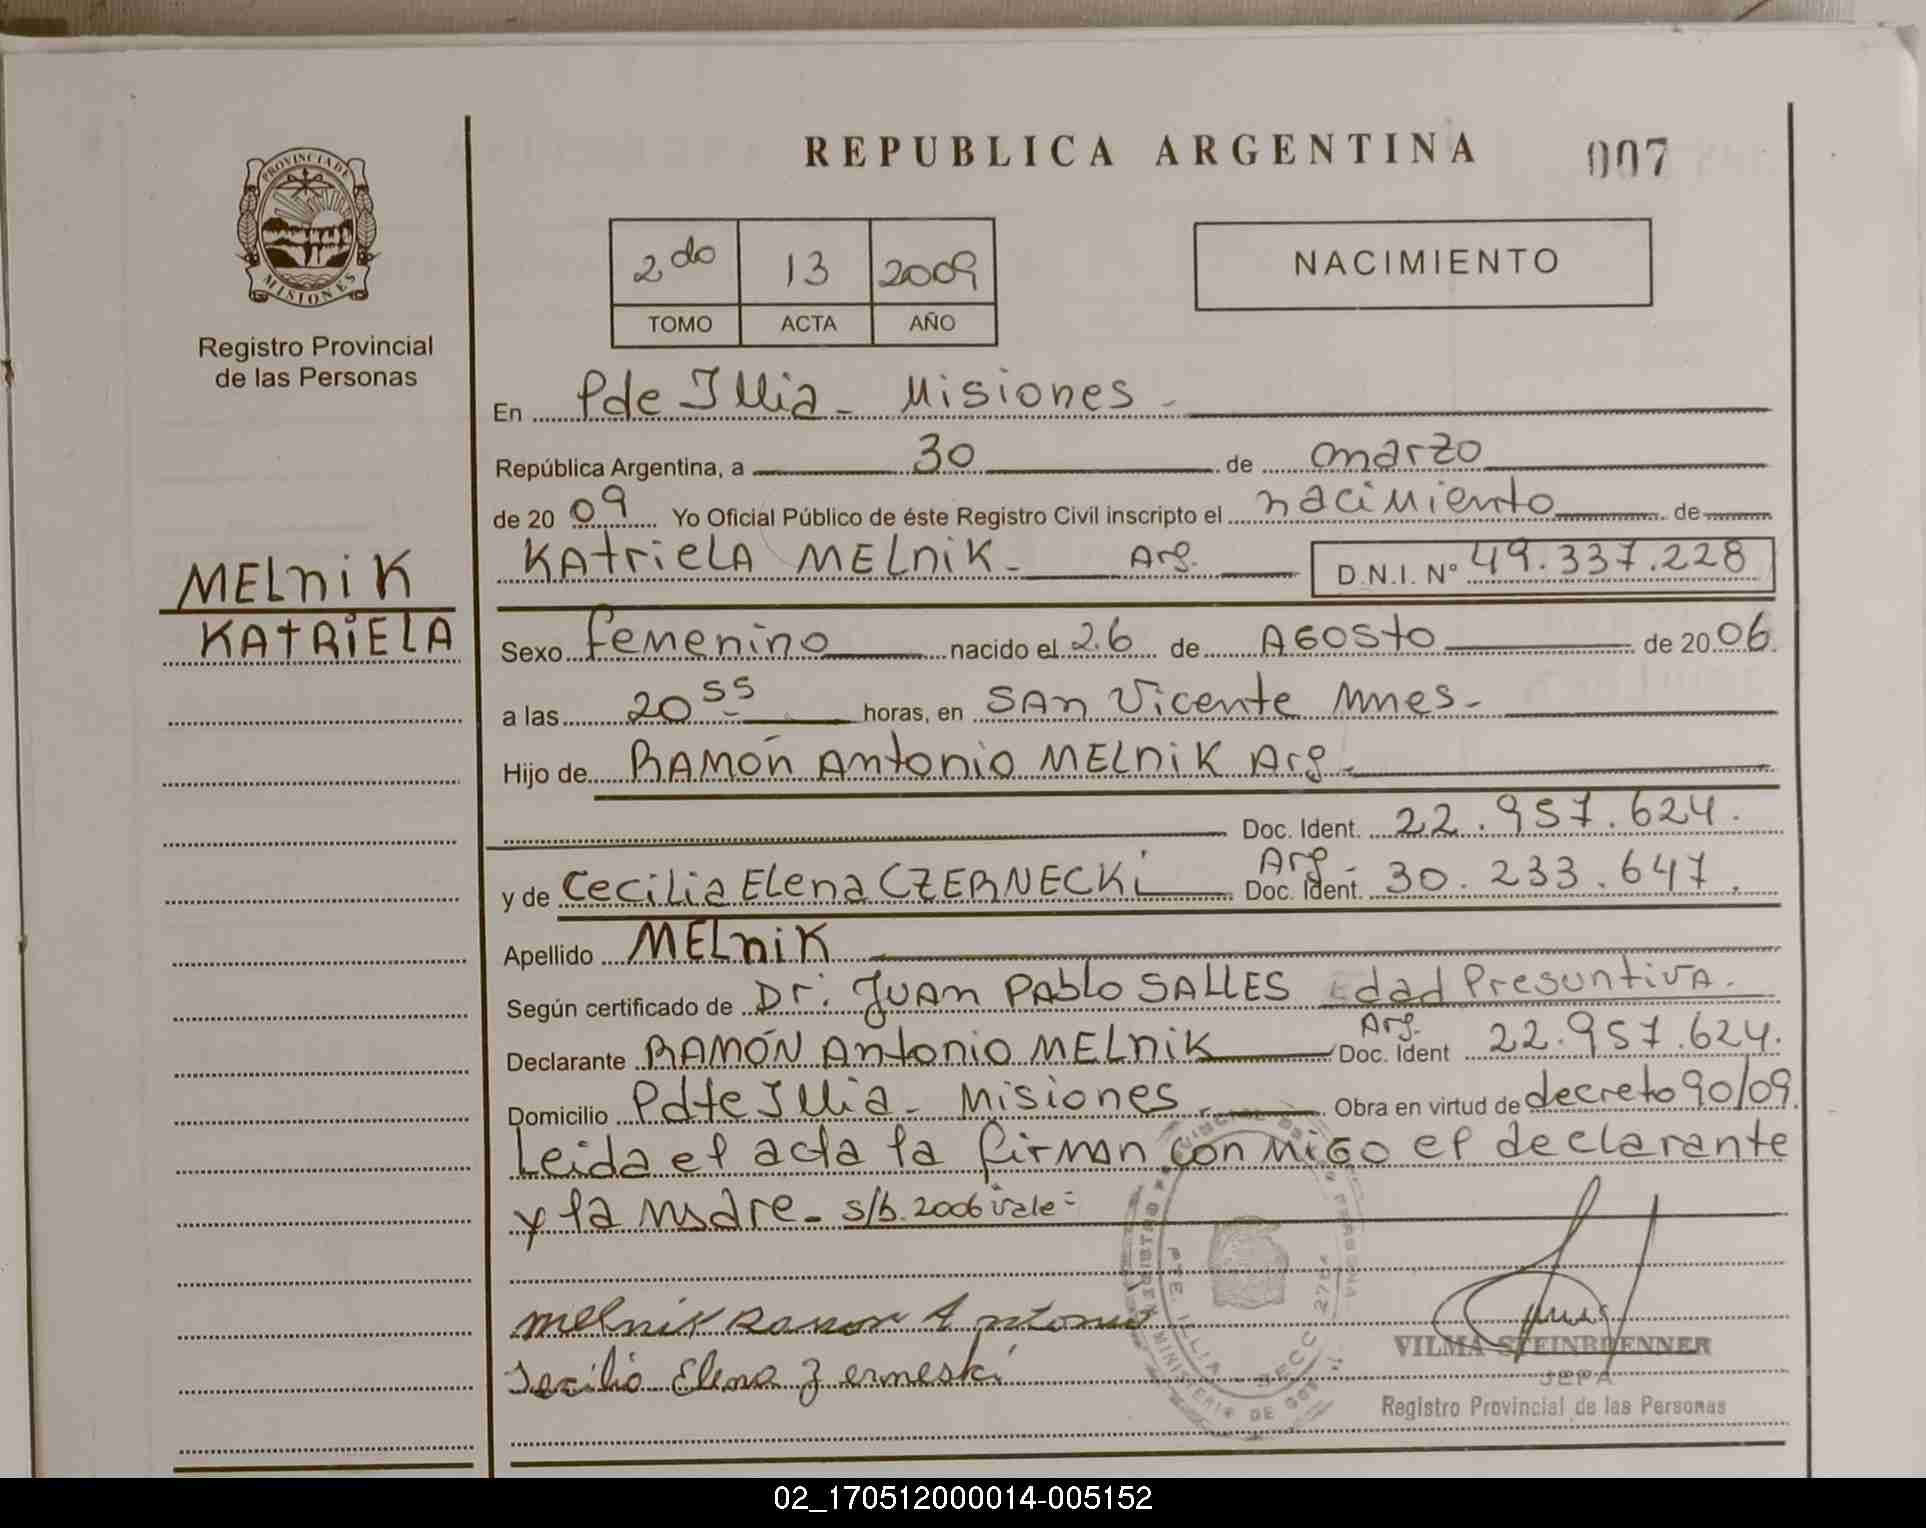 REPUBLICA ARGENTINA
007
PROVINCIA DE
MISIONES
Registro Provincial
de las Personas
2do 13 2009
TOMO ACTA AÑO
NACIMIENTO
En Pde Illia - Misiones -
República Argentina, a 30 de marzo
de 20 09 Yo Oficial Público de éste Registro Civil inscripto el nacimiento de
KAtrielA MELniK - Arg. D.N.I. N° 49.337.228
MELniK
KAtRiELA
Sexo femenino nacido el 26 de AGOSto de 20 06.
a las 20 55 horas, en SAn Vicente Mnes -
Hijo de RAMón Antonio MELniK Arg -
Doc. Ident. 22.957.624.
y de Cecilia Elena CZERNECKi Arg - Doc. Ident. 30.233.647.
Apellido MELniK
Según certificado de Dr: JuAn PAblo SALLES Edad PresuntivA.
Declarante RAMÓN Antonio MELniK Arg. Doc. Ident 22.957.624.
Domicilio Pdte Illia - Misiones. Obra en virtud de decreto 90/09.
Leida el acta la firman conmigo el declarante
y la madre - s/b. 2006 vale =
melnik Ramon Antonio
Elena
PTE. ILLIA - SECC 
MINISTERIO DE GOB
VILMA STEINBRENNER
JEFA
Registro Provincial de las Personas
02_170512000014-005152